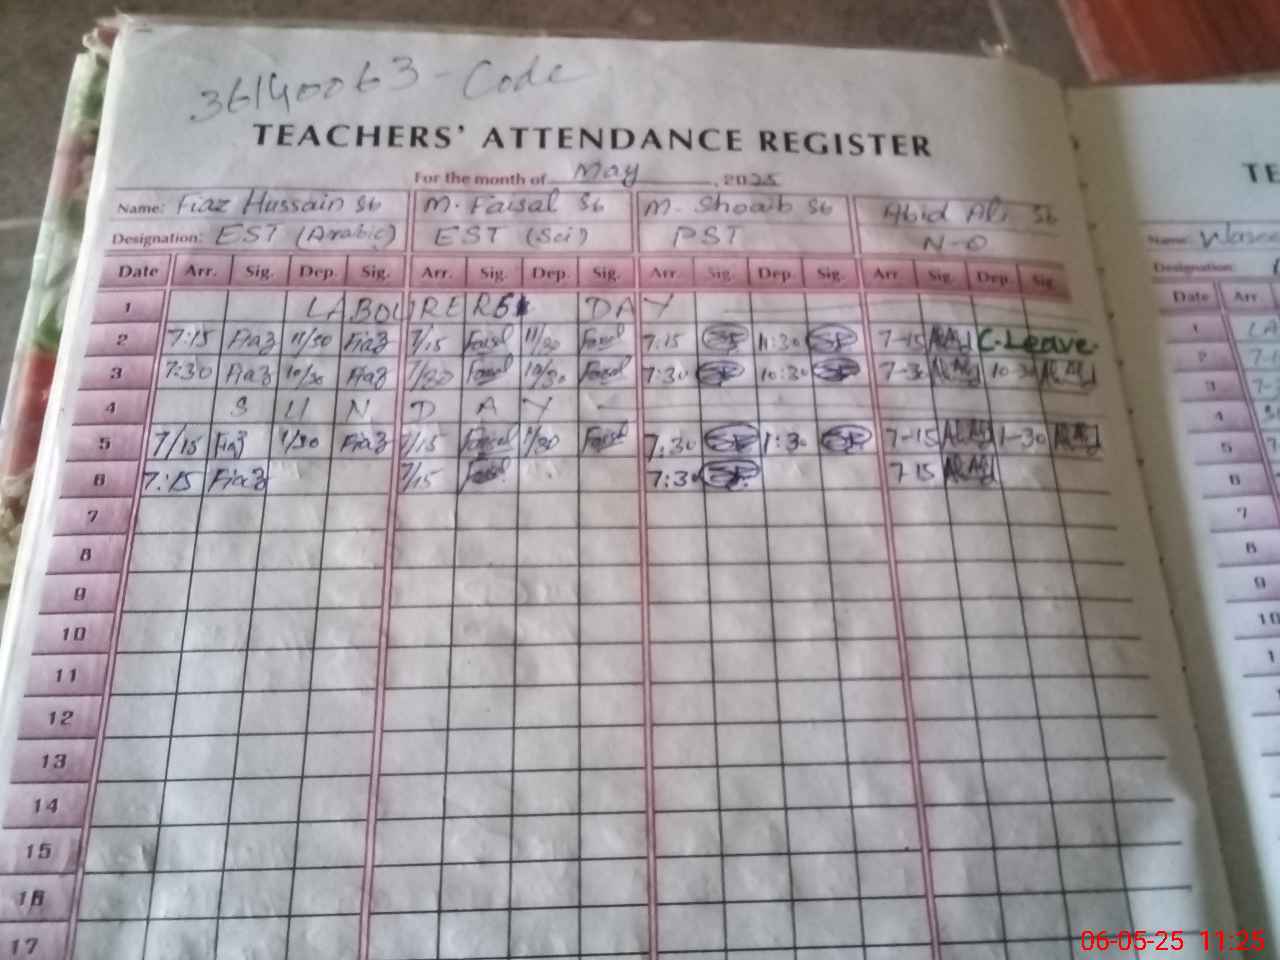 36140063 - Code
TEACHERS' ATTENDANCE REGISTER
For the month of May, 2025
Name: Fiaz Hussain Sb M. Faisal Sb M. Shoaib Sb Abid Ali Sb
Designation: EST (Arabic) EST (Sci) PST N-Q
Date Arr. Sig. Dep. Sig. Arr. Sig. Dep. Sig. Arr. Sig. Dep. Sig. Arr Sig. Dep. Sig.
1 LABOURERS DAY
2 7:15 Fiaz 11/30 Fiaz 7/15 Faisal 11/30 Faisal 7:15 SF 11:30 SF 7-15 C-Leave.
3 7:30 Fiaz 10/30 Fiaz 7/30 Faisal 10/30 Faisal 7:30 SF 10:30 SF 7-30 10-30
4 SUNDAY
5 7/15 Fiaz 1/30 Fiaz 7/15 Faisal 1/30 Faisal 7:30 SF 1:30 SF 7-15 1-30
6 7:15 Fiaz 7/15 Faisal 7:30 SF 7-15
7
8
9
10
11
12
13
14
15
16
17
TE
Name:
Designation:
Date Arr.
1 LA
2
3
4
5
6
7
8
9
10
06-05-25 11:25